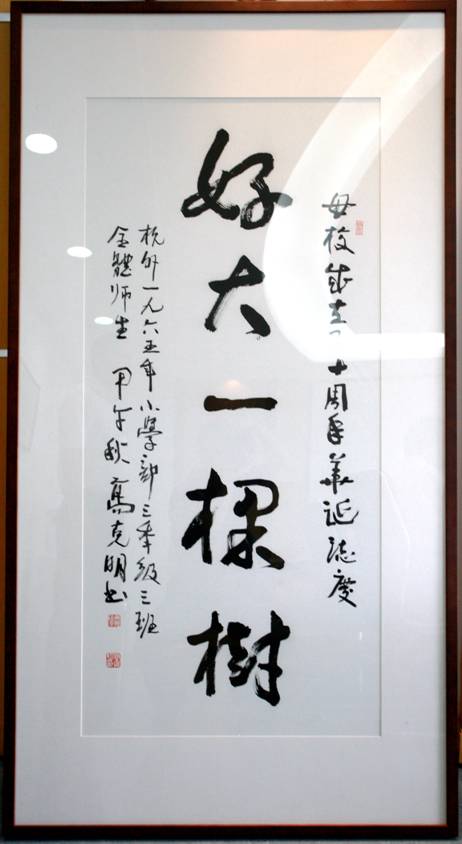 母校成立十周年華诞誌慶
好大一棵樹
杭外一九六五年小學部三年級三班
全體师生 甲午秋 高克明书